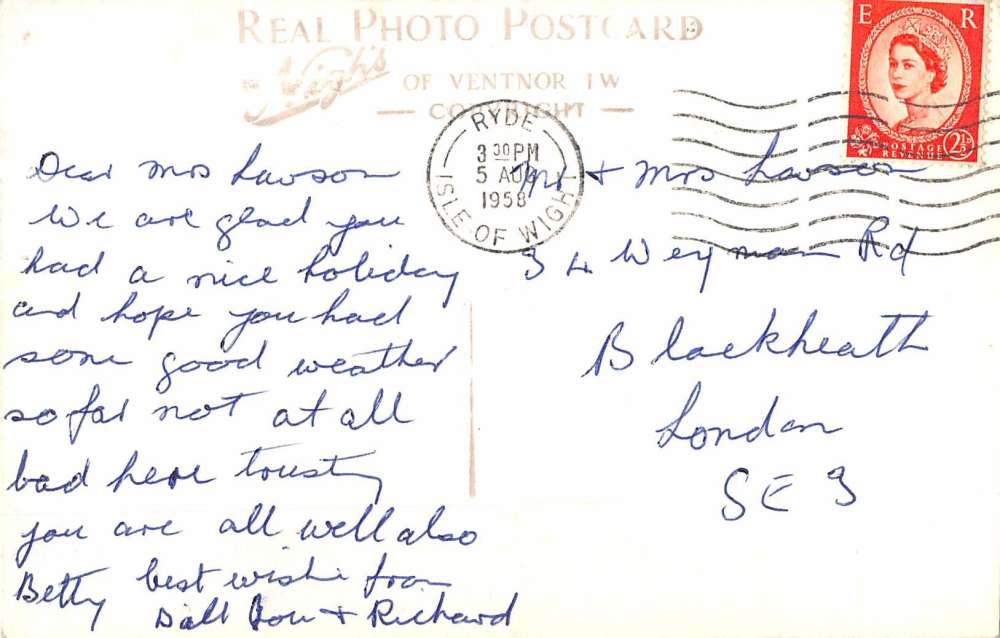 REAL PHOTO POSTCARD
Nigh's
OF VENTNOR I W
COPYRIGHT
E R
2½D
POSTAGE
REVENUE
RYDE
3 30 PM
5 AUG
1958
ISLE OF WIGHT
Dear Mrs Lawson
We are glad you
had a nice holiday
and hope you had
some good weather
so far not at all
bad here trusting
you are all well also
Betty best wishes from
& Richard
Mr & Mrs Lawson
34 Weyman Rd
Blackheath
London
SE 3